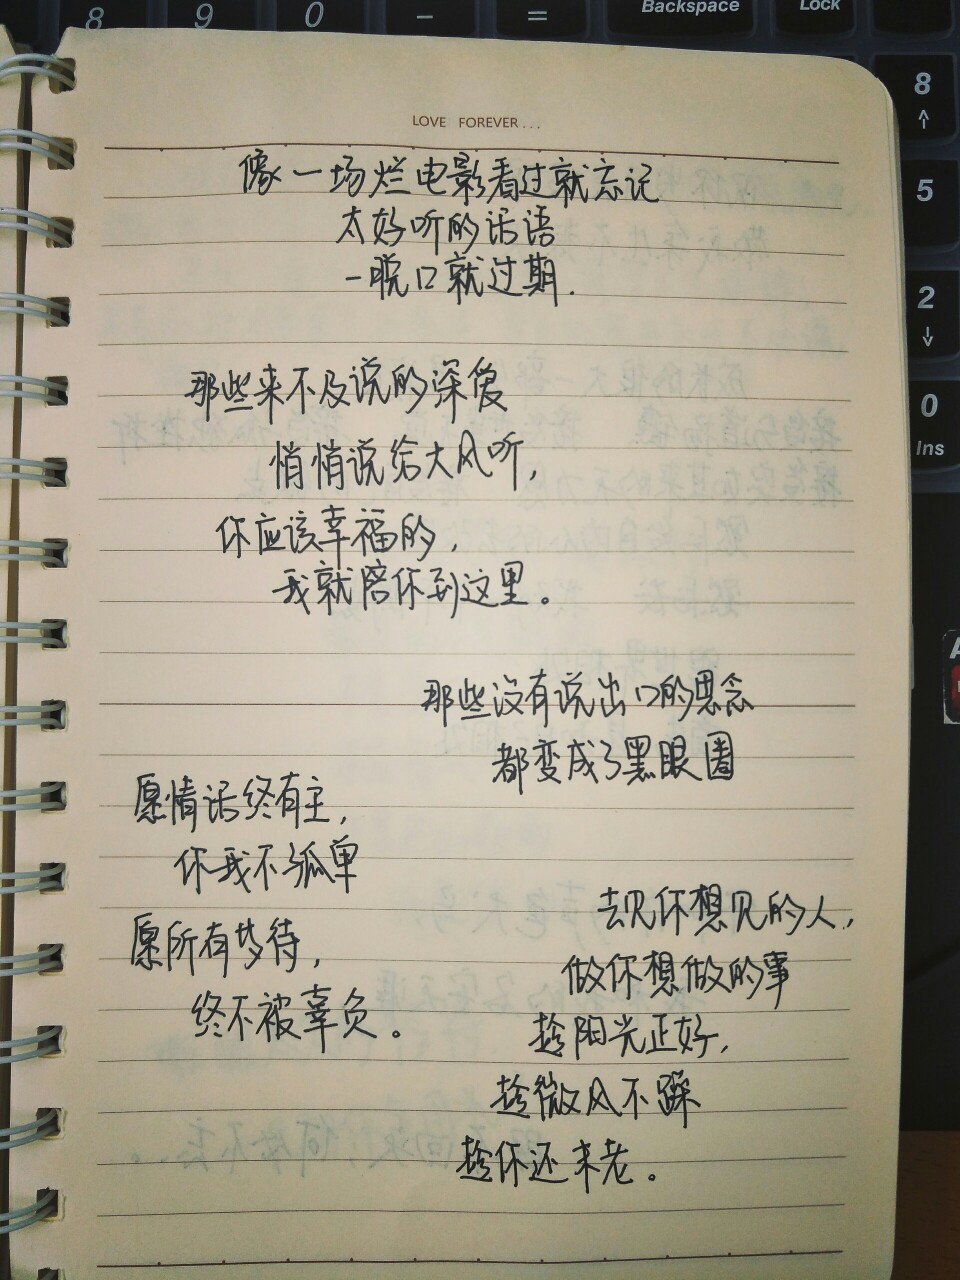 8 9 0 - =
Backspace
Lock
8
5
2
0
Ins
LOVE FOREVER...
像一场烂电影看过就忘记
太好听的话语
一脱口就过期.
那些来不及说的深爱
悄悄说给大风听,
你应该幸福的,
我就陪你到这里。
那些没有说出口的思念
都变成了黑眼圈
愿情话终有主,
你我不孤单
愿所有梦待,
终不被辜负。
去见你想见的人,
做你想做的事
趁阳光正好,
趁微风不躁
趁你还未老。